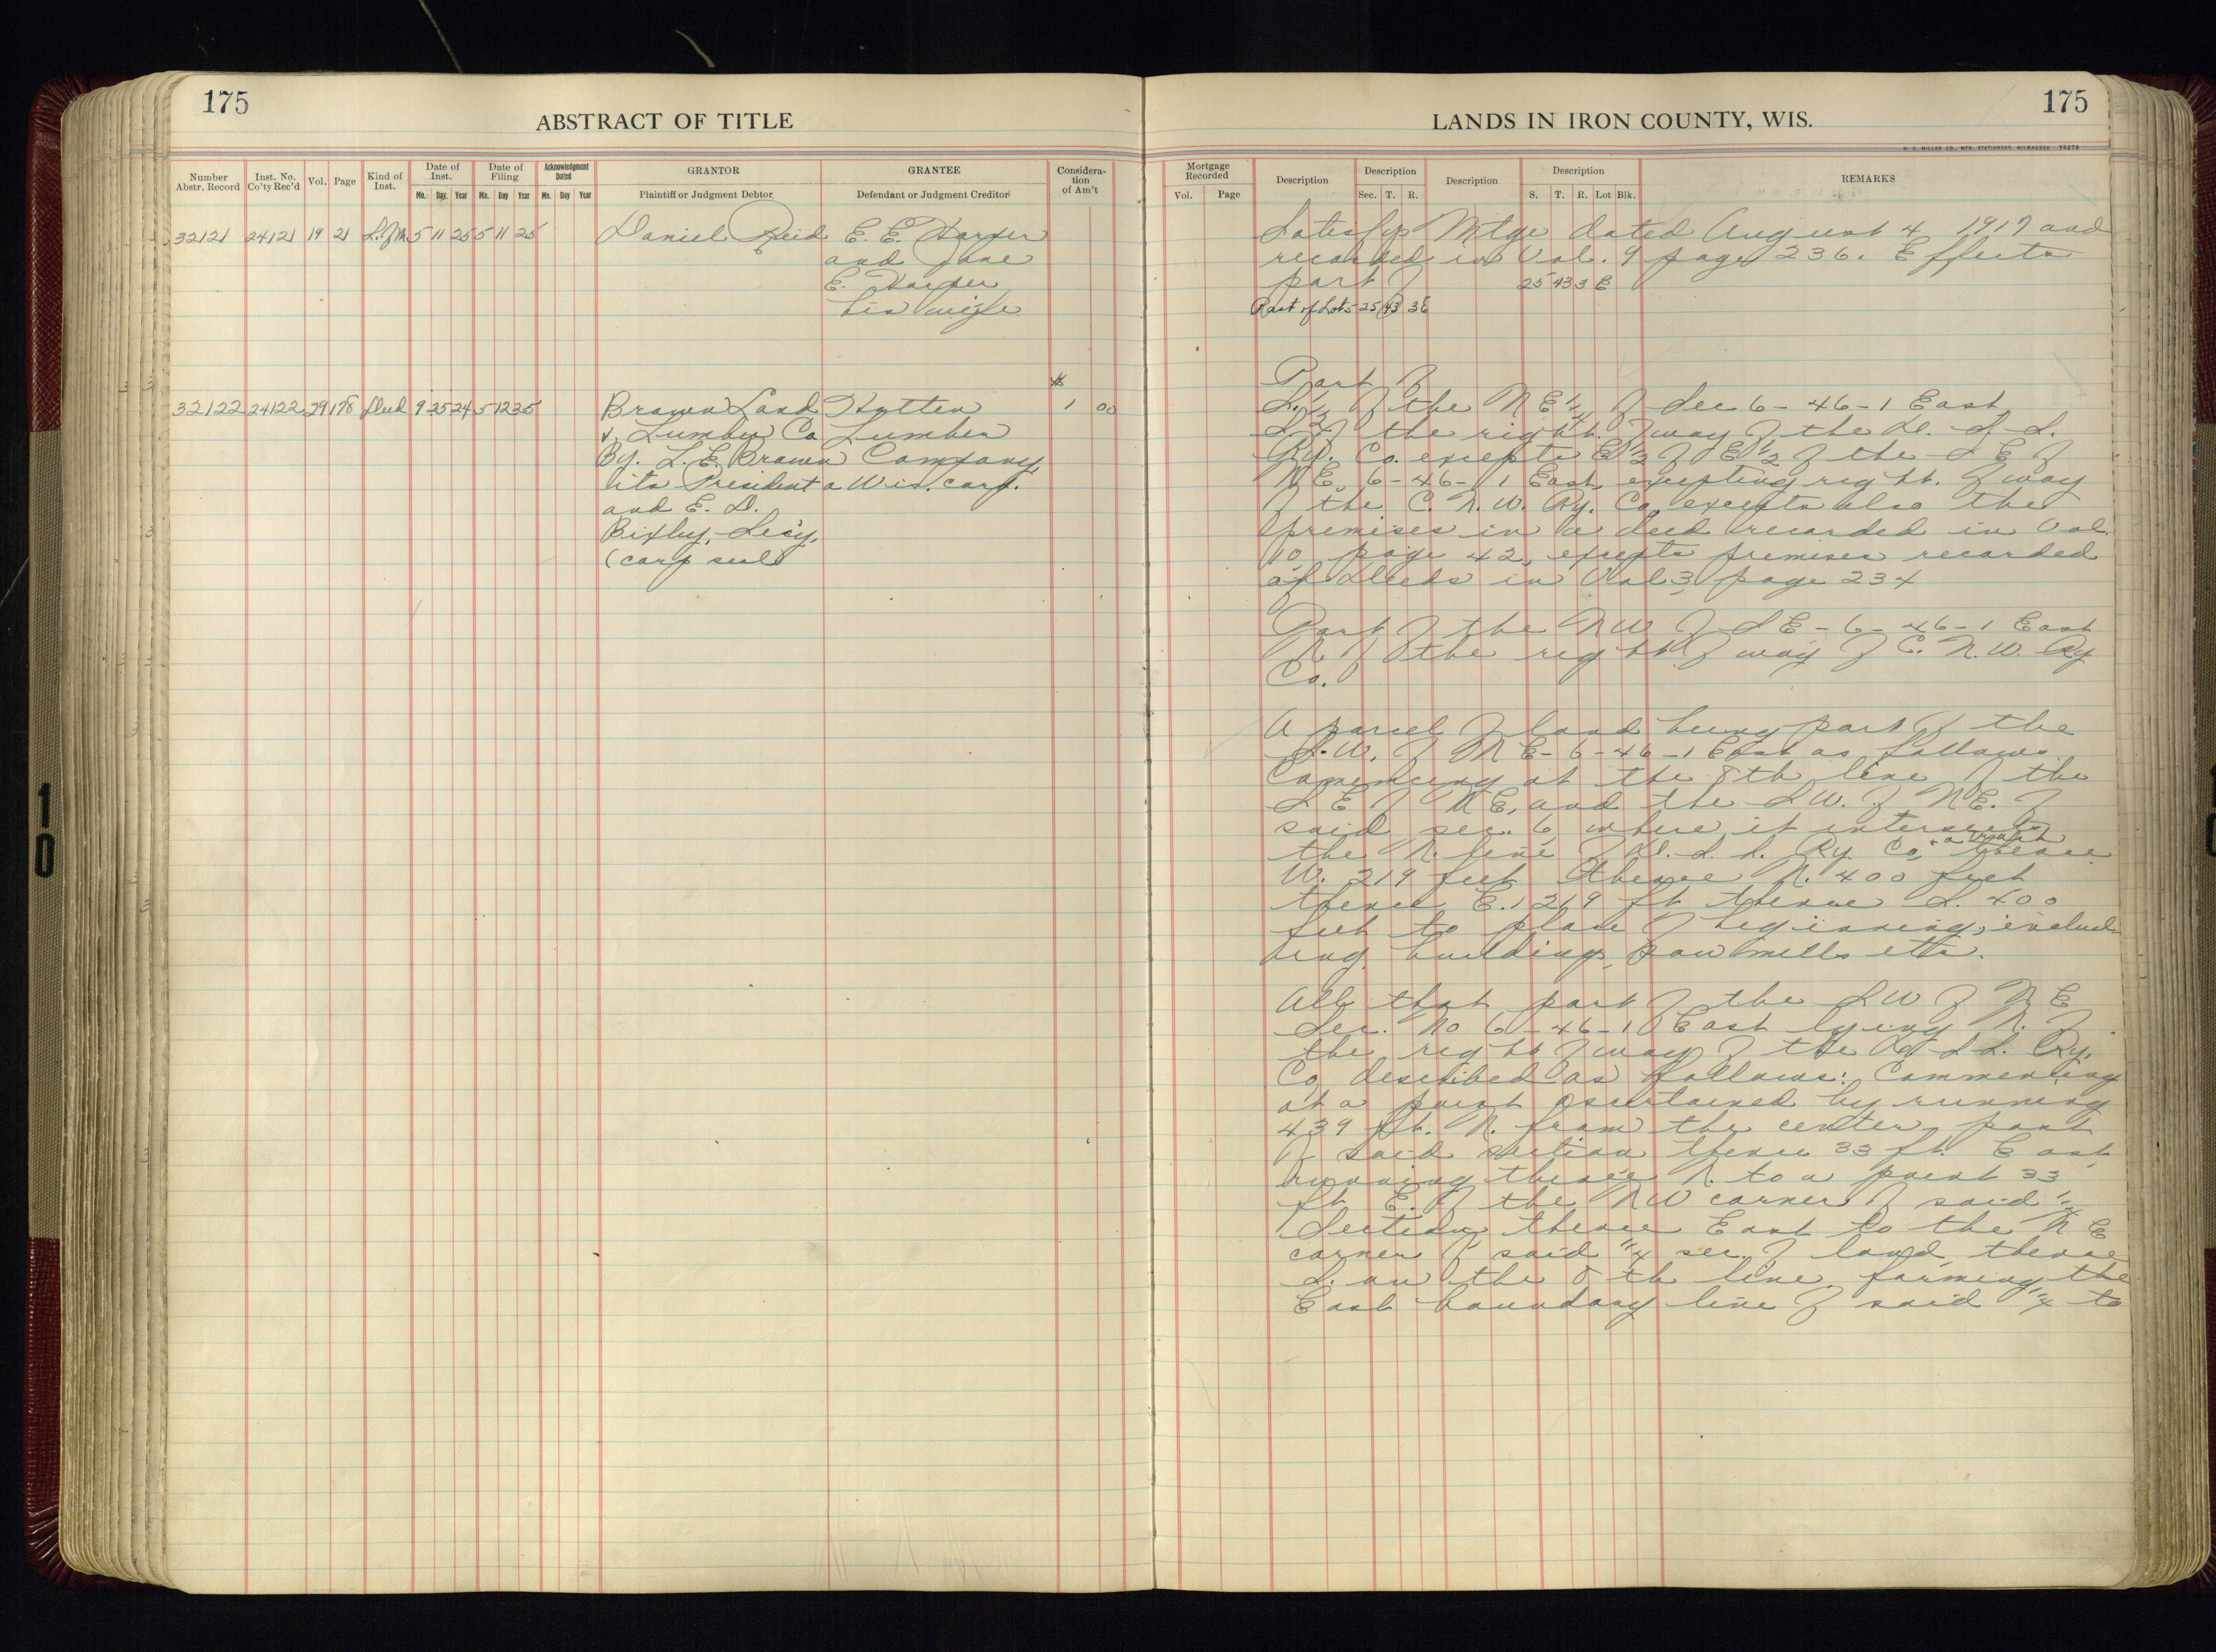 175
ABSTRACT OF TITLE
Number Abstr. Record
Inst. No. Co'ty Rec'd
Vol.
Page
Kind of Inst.
Date of Inst.
Mo. Day. Year
Date of Filing
Mo. Day Year
Acknowledgment Dated
Mo. Day Year
GRANTOR
Plaintiff or Judgment Debtor
GRANTEE
Defendant or Judgment Creditor
Considera-
tion
of Am't
32121 24121 19 21 S. of M. 5 11 25 5 11 25 Daniel Reid E. E. Harper
and Jane
E. Harper
his wife
32122 24122 29 178 Deed 9 25 24 5 12 25 Brown Land Hutten $ 1 00
& Lumber Co. Lumber
By. L. E. Brown Company,
its President a Wis. corp.
and E. D.
Bixby, Sec'y.
(corp seal)
175
LANDS IN IRON COUNTY, WIS.
H. C. MILLER CO., MFG. STATIONERS, MILWAUKEE
Mortgage Recorded
Vol. Page
Description
Description
Sec. T. R.
Description
Description
S. T. R. Lot Blk.
REMARKS
Satisfys Mtge dated August 4 1917 and
recorded in Vol. 9 page 236. Effects
part of 25 43 3 E
Part of Lot 5 25 43 3E
Part of
S. 1/2 of the NE 1/4 of Sec 6-46-1 East
S. of the right of way of the D. S. S.
Ry. Co. excepts E 1/2 of E 1/2 of the S E of
N E, 6-46-1 East excepting right of way
of the C. N. W. Ry. Co. excepts also the
premises in a deed recorded in Vol.
10 page 42, excepts premises recorded
of Deeds in Vol 3 page 234
Part of the NW of SE-6-46-1 East
N. of the right of way of C. N. W. Ry
Co.
A parcel of land being part of the
S.W. of N E-6-46-1 East as follows
Commencing at the 8th line of the
S E of N E, and the S W. of N E. of
said sec. 6 where it intersects
the N. line of D. S. S. Ry Co. thence
W. 219 feet thence N. 400 feet
thence E. 219 ft thence S. 400
feet to place of beginning, includ-
ing buildings, saw mills etc.
All that part of the S W of N E
Sec. No 6-46-1 East lying N. of
the right of way of the D. S. S. Ry.
Co. described as follows: Commencing
at a point ascertained by running
439 ft. N. from the center post
of said section thence 33 ft. East
running thence N. to a point 33
ft E. of the NW corner of said 1/4
Section, thence East to the N E
corner of said 1/4 sec. of land, thence
S. on the 8th line, forming the
East boundary line of said 1/4 to